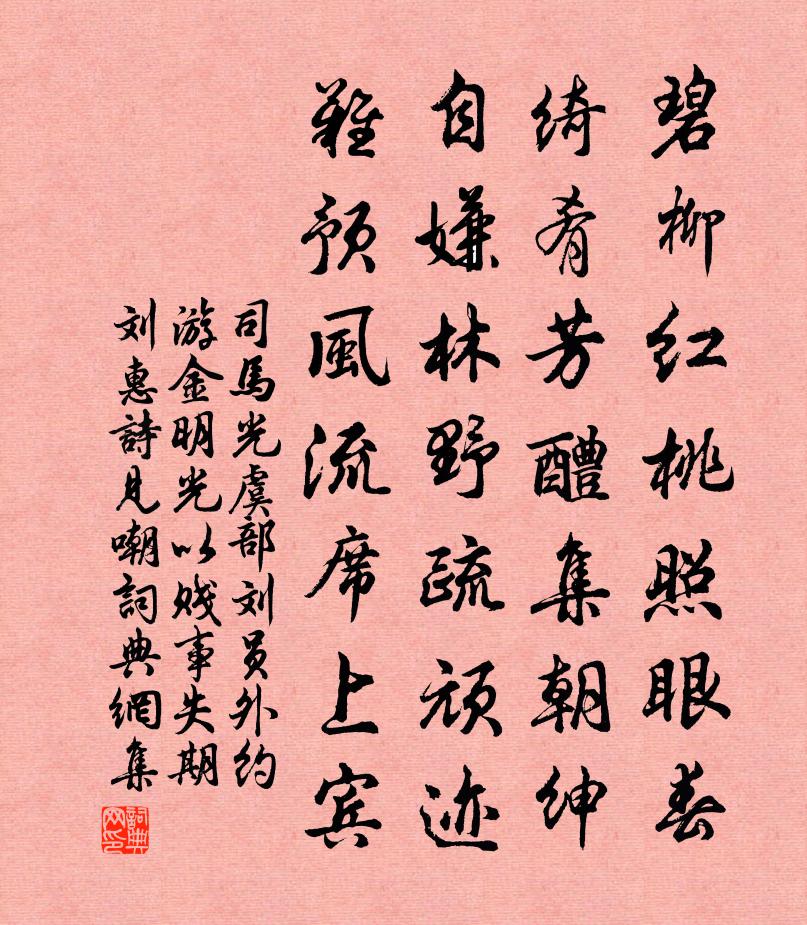 碧柳红桃照眼春
绮肴芳醴集朝绅
自嫌林野疏顽迹
难预風流席上宾
司馬光虞部刘员外约
游金明光以贱事失期
刘惠詩見嘲詞典網集
詞典网印